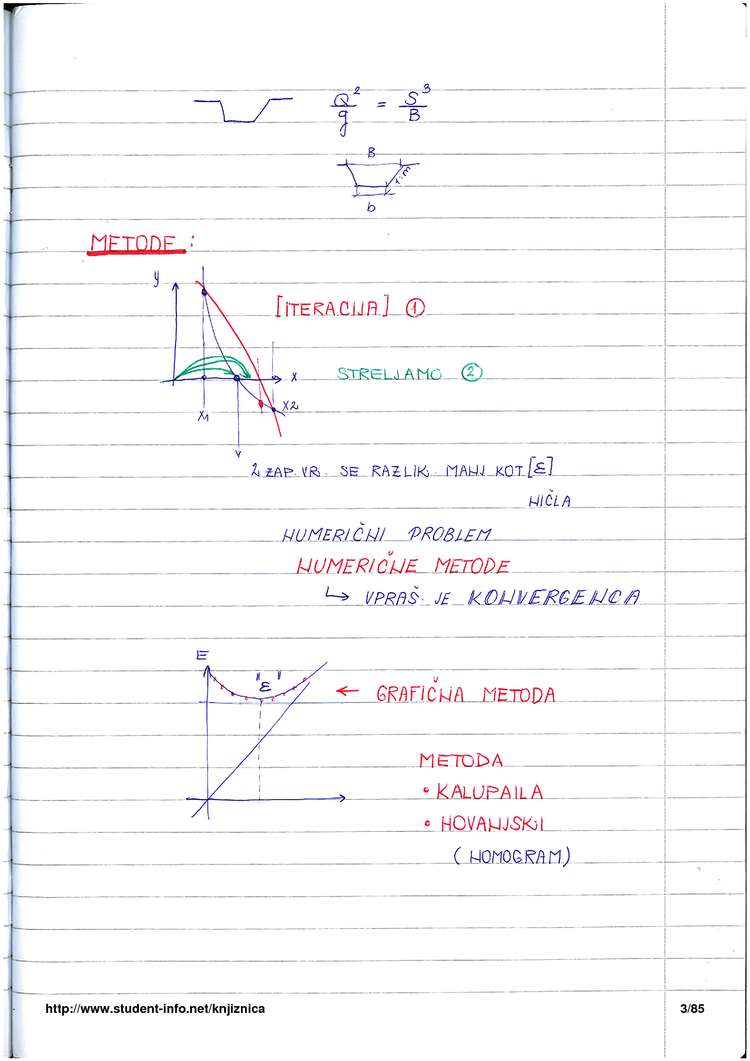 Q²/g = S³/B
B
1:m
b
METODE:
y
[ITERACIJA] ①
STRELJAMO ②
x
x1
x2
2 ZAP. VR. SE RAZLIK. MANJ KOT [ε]
NIČLA
NUMERIČNI PROBLEM
NUMERIČNE METODE
↳ VPRAŠ. JE KONVERGENCA
E
"ε"
← GRAFIČNA METODA
METODA
• KALUPAILA
• HOVANJSKII
(NOMOGRAM)
http://www.student-info.net/knjiznica
3/85